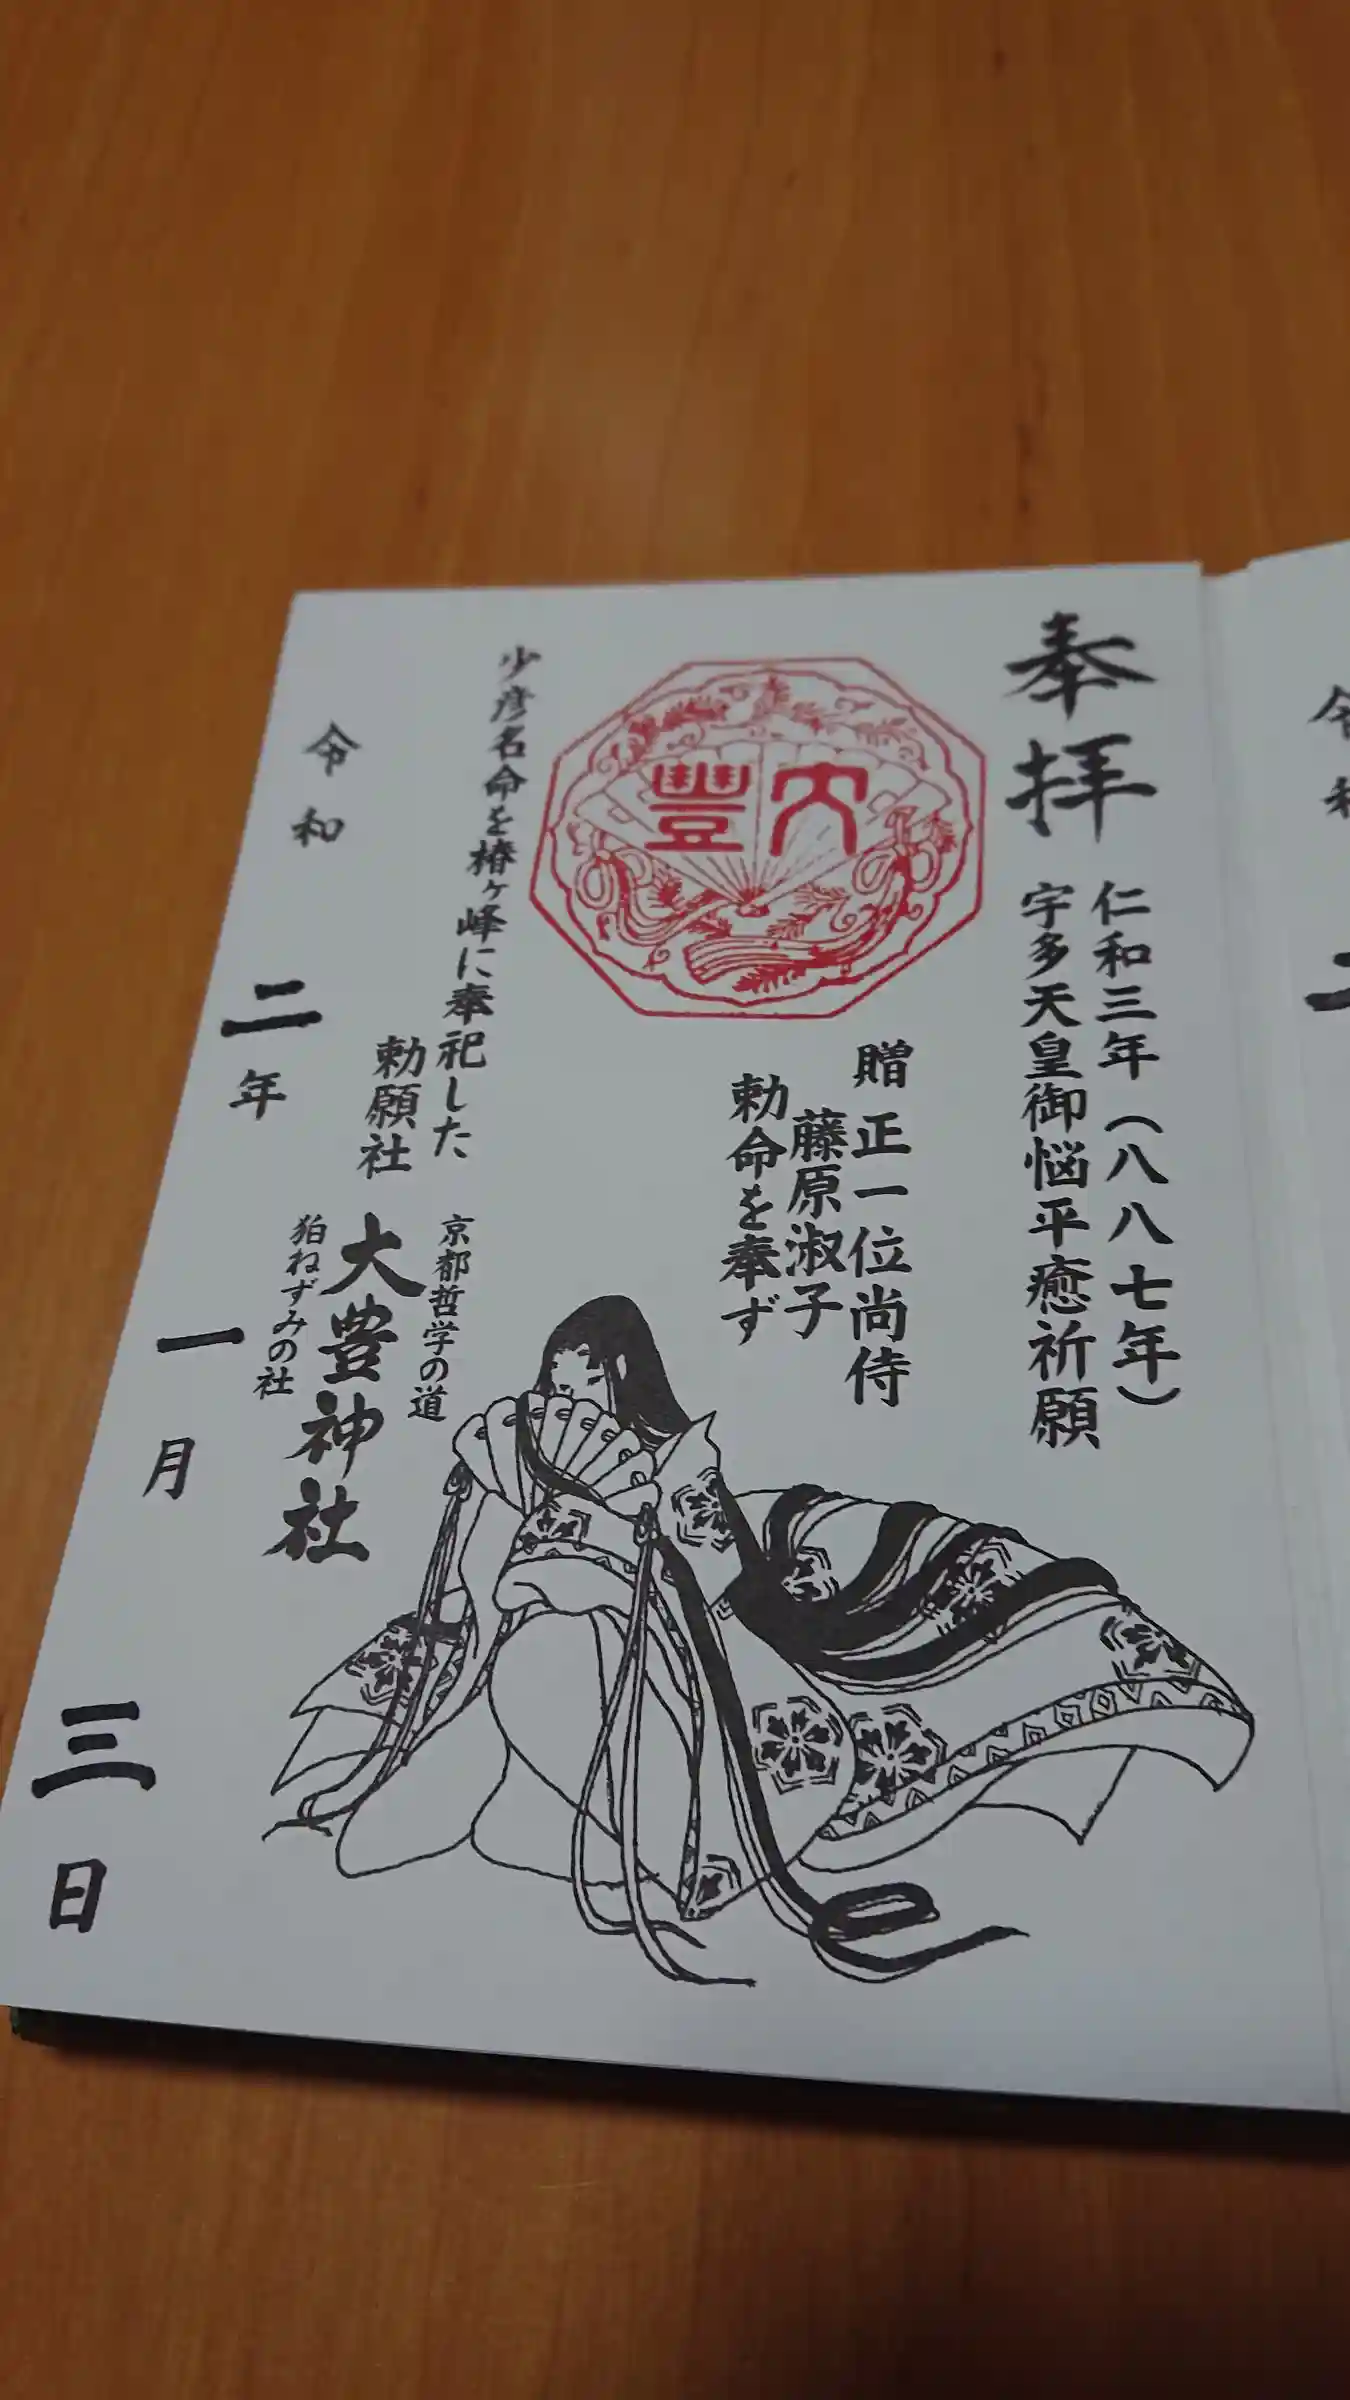 奉拝
仁和三年(八八七年)
宇多天皇御悩平癒祈願
大豐
贈 正一位尚侍
藤原淑子
勅命を奉ず
少彦名命を椿ヶ峰に奉祀した
勅願社
京都哲学の道
大豊神社
狛ねずみの社
令和 二年 一月 三日
令和